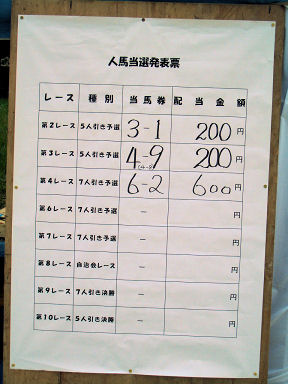 人馬当選発表票
レース 種別 当馬券 配当金額
第2レース 5人引き予選 3-1 200円
第3レース 5人引き予選 4-9 200円
第4レース 7人引き予選 6-2 600円
第6レース 7人引き予選 - 円
第7レース 7人引き予選 - 円
第8レース 自治会レース - 円
第9レース 7人引き決勝 - 円
第10レース 5人引き決勝 - 円